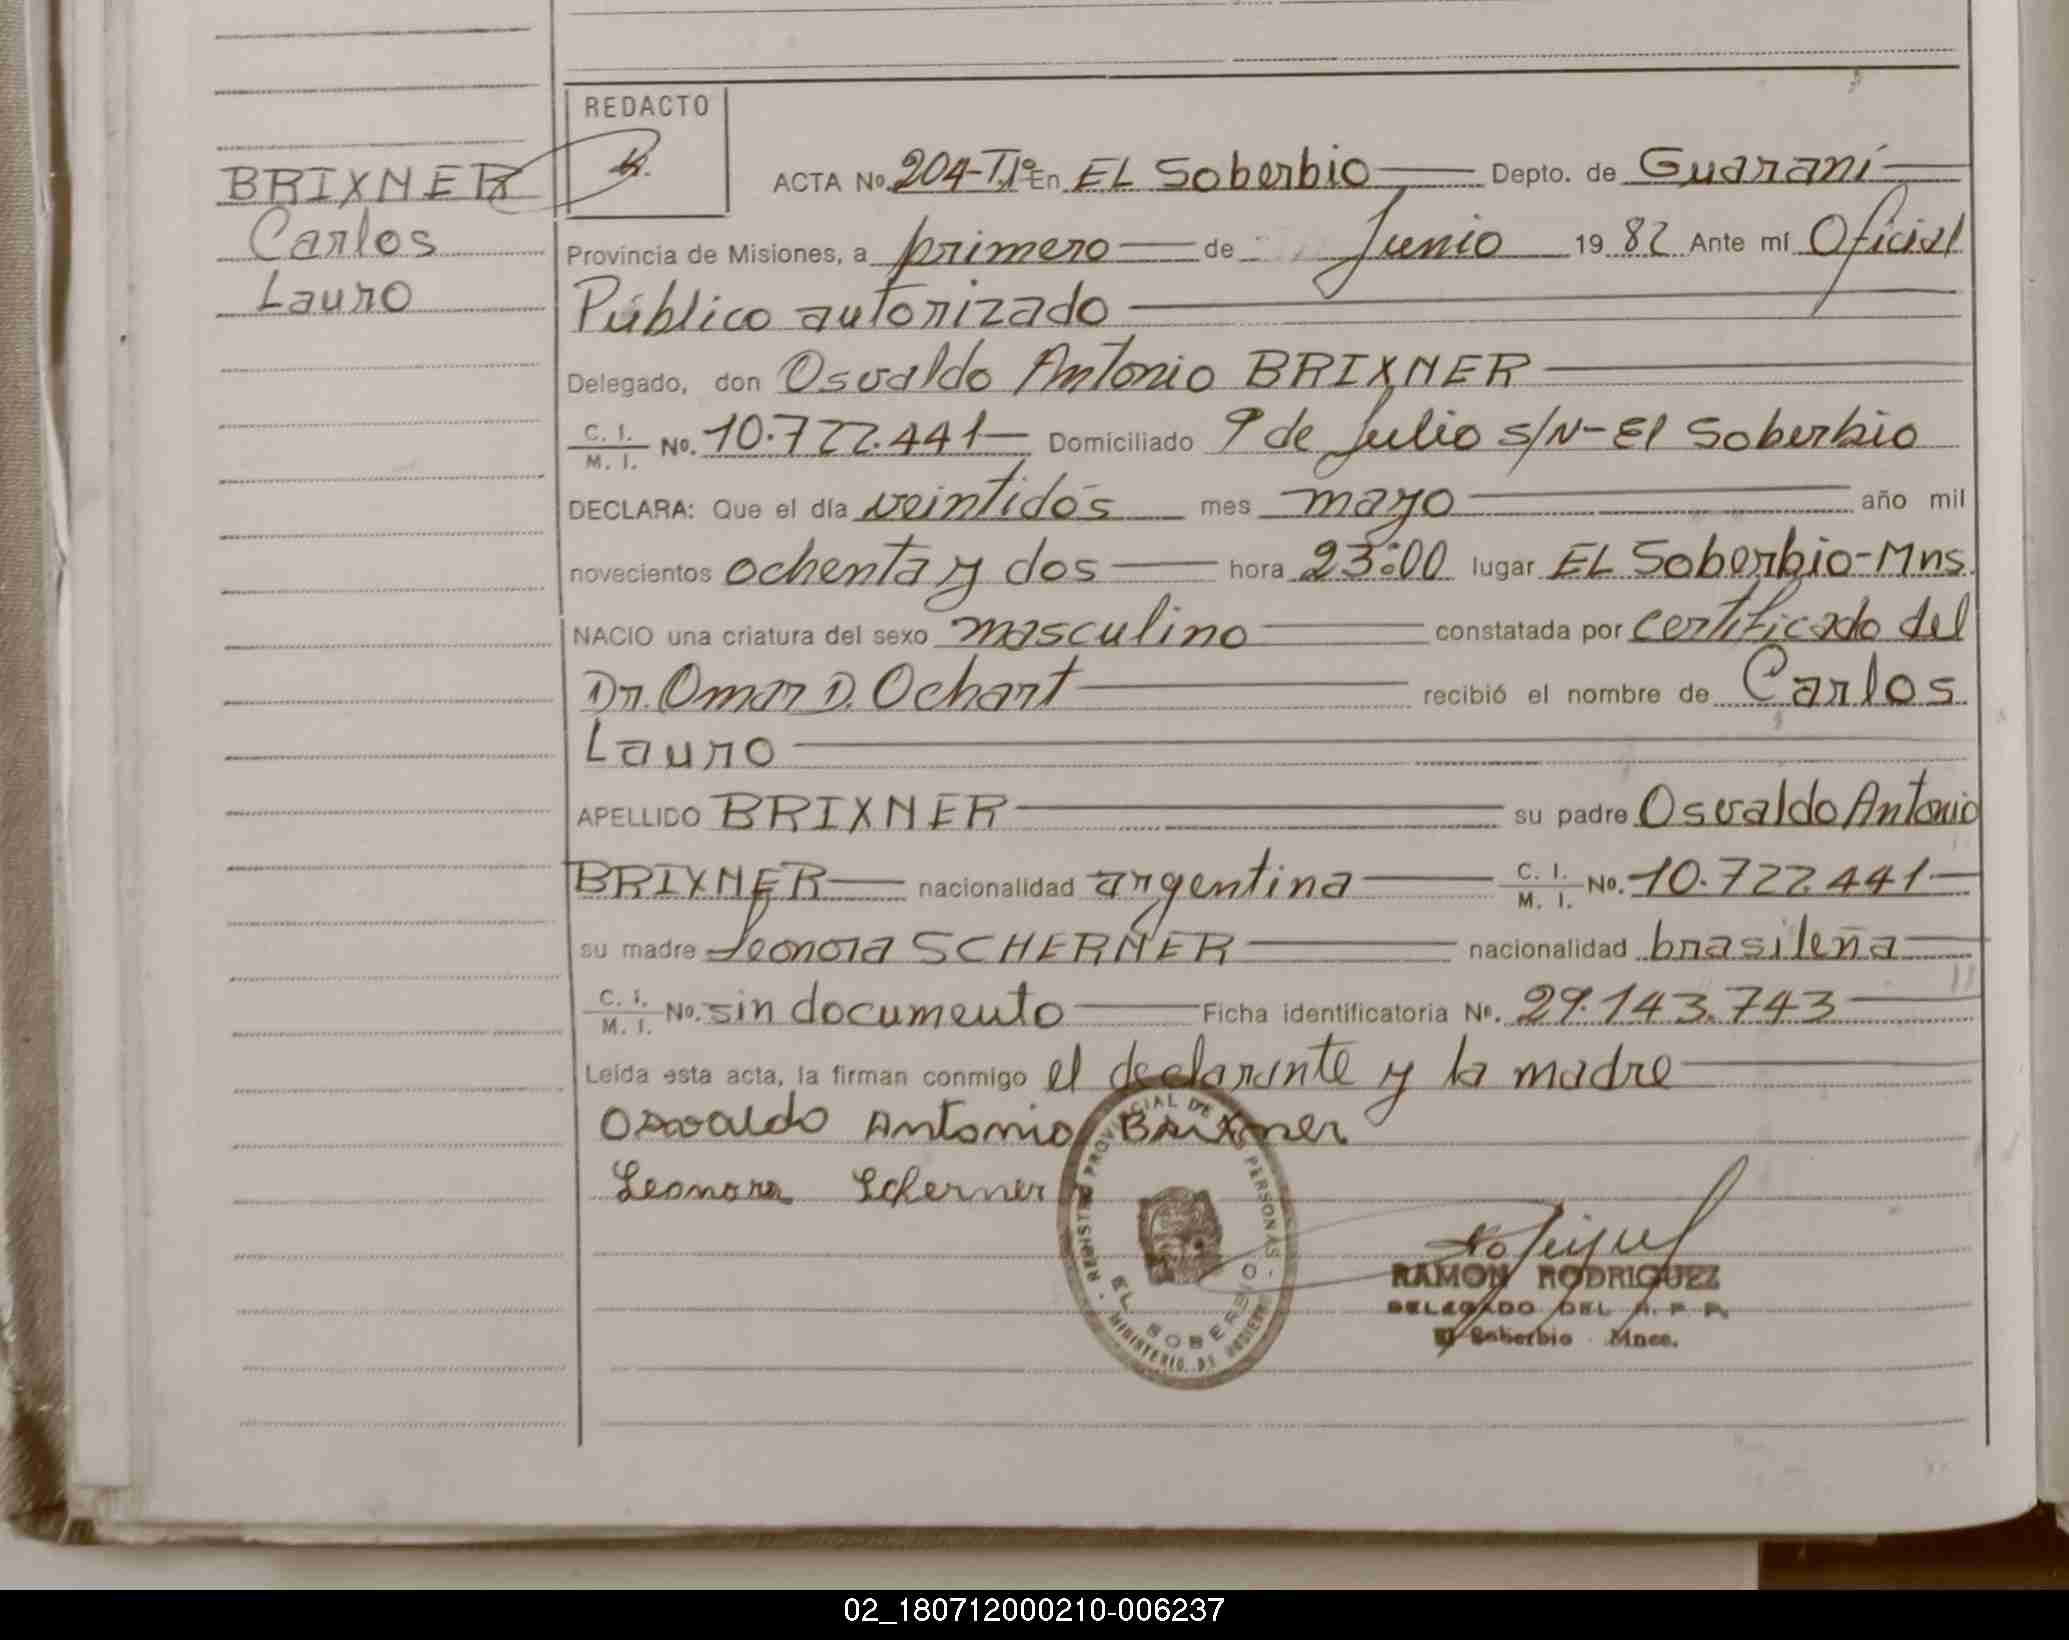 REDACTO
BRIXNER
Carlos
Lauro
ACTA No. 204-T,1º En EL Soberbio Depto. de Guaraní
Provincia de Misiones, a primero de Junio 19 82 Ante mí Oficial
Público autorizado
Delegado, don Osvaldo Antonio BRIXNER
C. I. / M. I. No. 10.722.441 Domiciliado 9 de Julio S/N-El Soberbio
DECLARA: Que el día veintidós mes mayo año mil
novecientos ochenta y dos hora 23:00 lugar EL Soberbio-Mns.
NACIO una criatura del sexo masculino constatada por certificado del
Dr. Omar D. Ochart recibió el nombre de Carlos
Lauro
APELLIDO BRIXNER su padre Osvaldo Antonio
BRIXNER nacionalidad argentina C. I. / M. I. No. 10.722.441
su madre Leonora SCHERNER nacionalidad brasileña
C. I. / M. I. No. sin documento Ficha identificatoria Nº. 29.143.743
Leída esta acta, la firman conmigo el declarante y la madre
Osvaldo Antonio Brixner
Leonora Scherner
REGISTRO PROVINCIAL DE PERSONAS
EL SOBERBIO
MINISTERIO DE GOBIERNO
RAMON RODRIGUEZ
DELEGADO DEL R. P. P.
El Soberbio - Mnes.
02_180712000210-006237